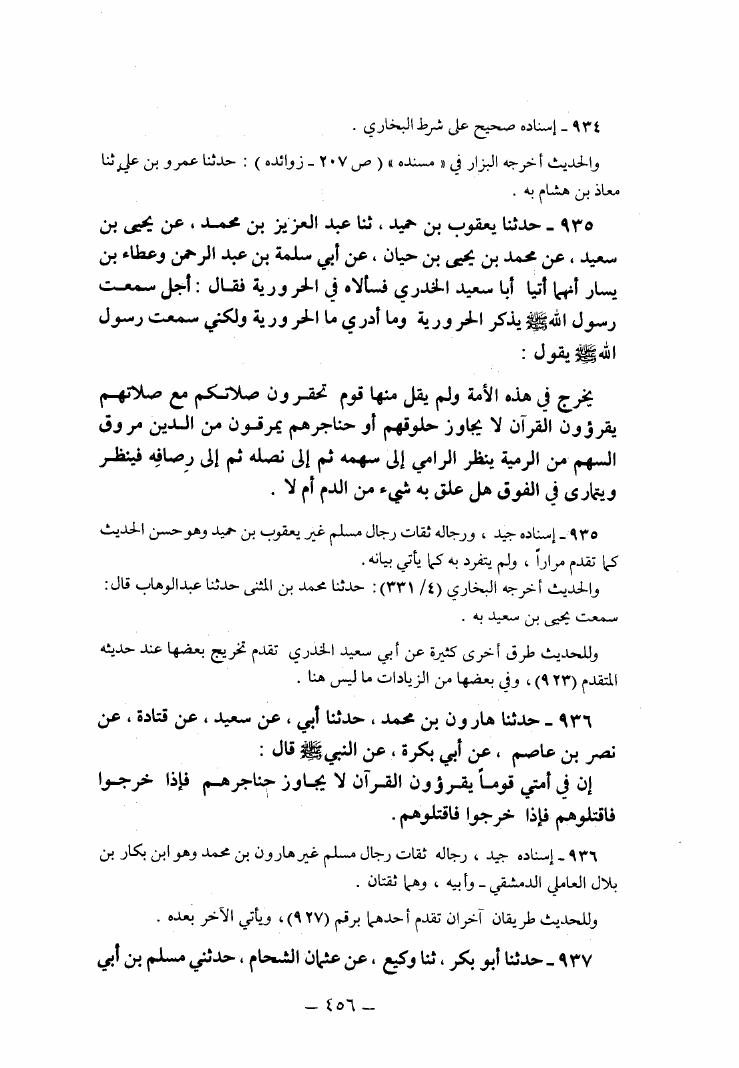 ٩٣٤ ـ إسناده صحيح على شرط البخاري .
والحديث أخرجه البزار في « مسنده » ( ص ٢٠٧ ـ زوائده ) : حدثنا عمرو بن علي ثنا
معاذ بن هشام به .
٩٣٥ ـ حدثنا يعقوب بن حميد ، ثنا عبد العزيز بن محمـد ، عن يحيى بن
سعيد ، عن محمد بن يحيى بن حيان ، عن أبي سلمة بن عبد الرحمن وعطاء بن
يسار أنهما أتيا أبا سعيد الخدري فسألاه في الحرورية فقـال : أجل سمعـت
رسول الله ﷺ يذكر الحرورية وما أدري ما الحرورية ولكني سمعت رسول
الله ﷺ يقول :
يخرج في هذه الأمة ولم يقل منها قوم تحقـرون صلاتـكم مع صلاتهـم
يقرؤون القرآن لا يجاوز حلوقهم أو حناجرهم يمرقـون من الـدين مروق
السهم من الرمية ينظر الرامي إلى سهمه ثم إلى نصله ثم إلى رصافِه فينظـر
ويتمارى في الفوق هل علق به شيء من الدم أم لا .
٩٣٥ ـ إسناده جيد ، ورجاله ثقات رجال مسلم غير يعقوب بن حميد وهو حسن الحديث
كما تقدم مراراً ، ولم يتفرد به كما يأتي بيانه .
والحديث أخرجه البخاري (٤/ ٣٣١) : حدثنا محمد بن المثنى حدثنا عبدالوهاب قال :
سمعت يحيى بن سعيد به .
وللحديث طرق أخرى كثيرة عن أبي سعيد الخدري تقدم تخريج بعضها عند حديثه
المتقدم (٩٢٣) ، وفي بعضها من الزيادات ما ليس هنا .
٩٣٦ ـ حدثنا هارون بن محمد ، حدثنا أبي ، عن سعيد ، عن قتادة ، عن
نصر بن عاصم ، عن أبي بكرة ، عن النبي ﷺ قال :
إن في أمتي قومـاً يقـرؤون القـرآن لا يجـاوز حناجرهـم فإذا خرجـوا
فاقتلوهم فإذا خرجوا فاقتلوهم .
٩٣٦ ـ إسناده جيد ، رجاله ثقات رجال مسلم غير هارون بن محمد وهو ابن بكار بن
بلال العاملي الدمشقي ـ وأبيه ، وهما ثقتان .
وللحديث طريقان آخران تقدم أحدهما برقم (٩٢٧) ، ويأتي الآخر بعده .
٩٣٧ ـ حدثنا أبو بكر ، ثنا وكيع ، عن عثمان الشحام ، حدثني مسلم بن أبي
ـ ٤٥٦ ـ